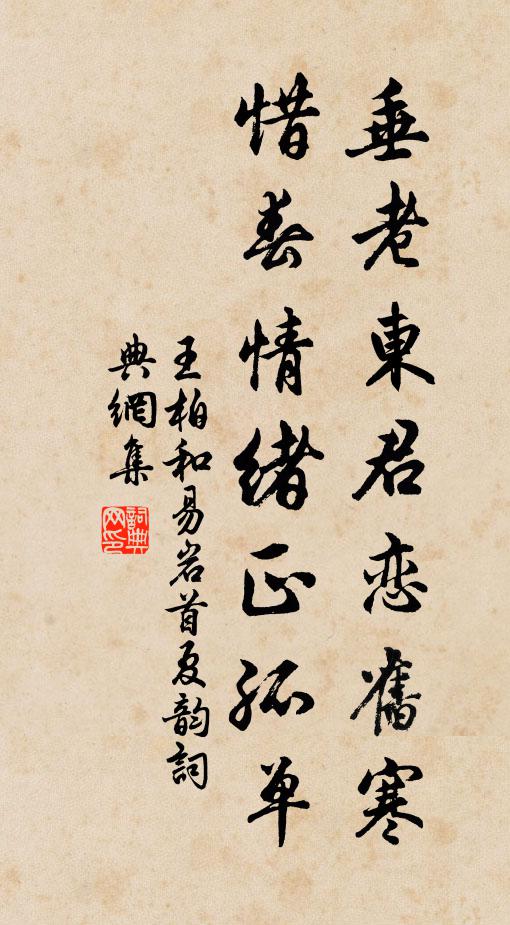 垂老東君恋舊寒
惜春情緒正孤单
王柏和易岩首夏韵詞
典網集
詞典
网印